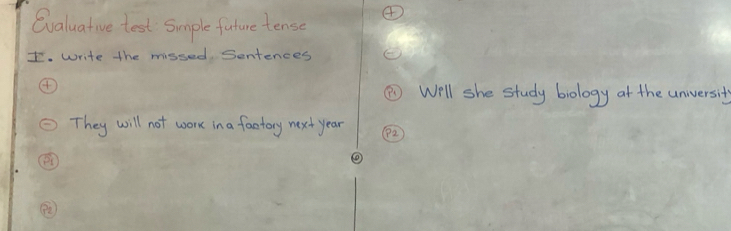 Evaluative test: Simple future tense
I. Write the missed Sentences
+
- They will not work in a factory next year
P1
P2
+
-
P1 Will she study biology at the university
P2